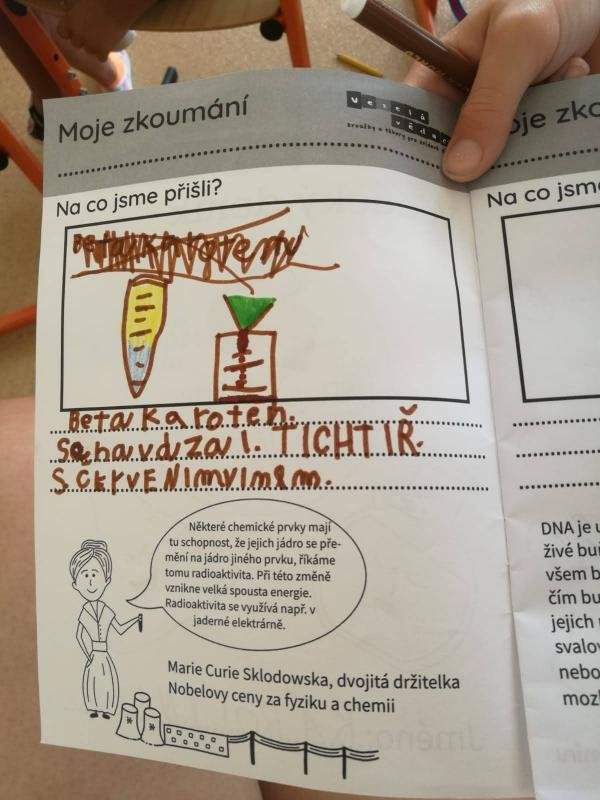 Moje zkoumání
veselá
vědač
kroužky a tábory pro zvídavé
oje zko
Na co jsme přišli?
Na co jsme
Beta karoten.
TICHTIŘ.
S CErVENIMVINEM.
Některé chemické prvky mají
tu schopnost, že jejich jádro se pře-
mění na jádro jiného prvku, říkáme
tomu radioaktivita. Při této změně
vznikne velká spousta energie.
Radioaktivita se využívá např. v
jaderné elektrárně.
Marie Curie Sklodowska, dvojitá držitelka
Nobelovy ceny za fyziku a chemii
DNA je u
živé buň
všem b
čím bu
jejich
svalov
nebo
moz